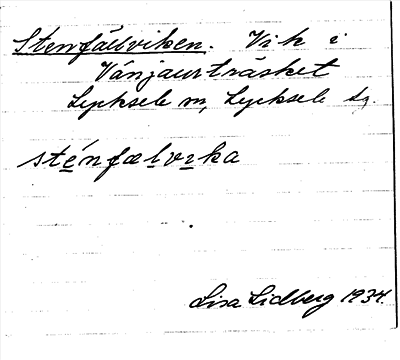 Stenfällviken. Vik i
Vänjaurträsket
Lycksele m, Lycksele sn.
sténfælvika
Lisa Lidberg 1934.